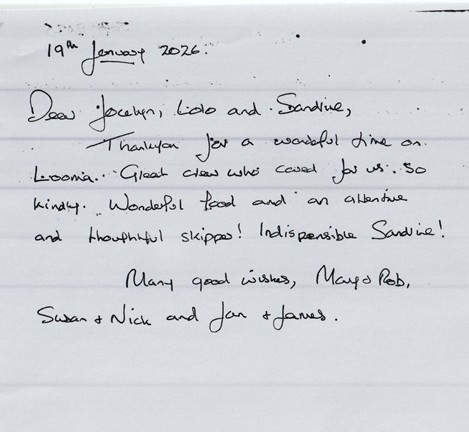 19th January 2026.
Dear Jocelyn, Lolo and Sandrine,
Thankyou for a wonderful time on
Loonia.. Great crew who cared for us so
kindly. Wonderful food and an attentive
and thoughtful skipper! Indispensible Sandrine!
Many good wishes, Mary & Rob,
Susan & Nick and Jan & James.